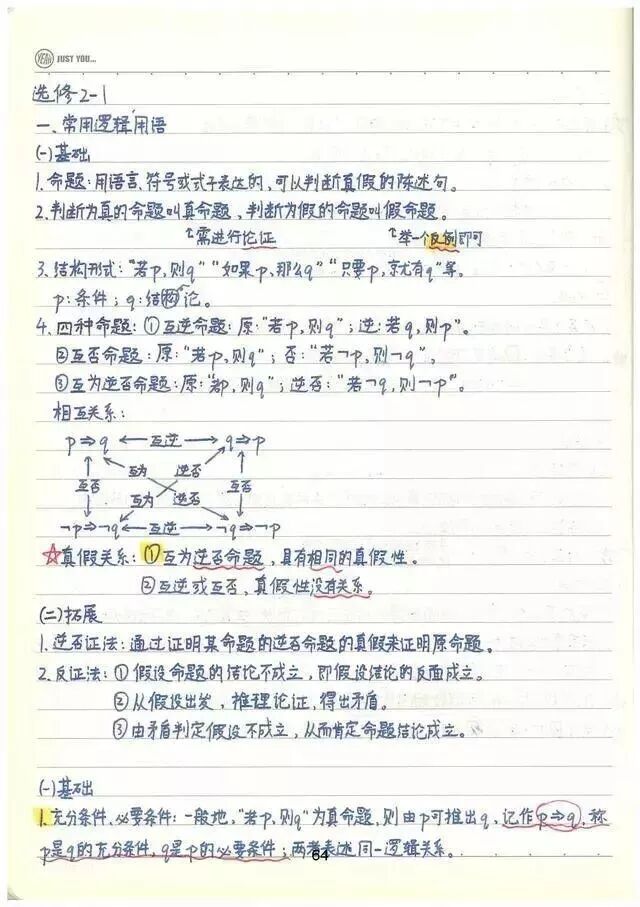 YEAH JUST YOU...
选修2-1
一、常用逻辑用语
(一)基础
1.命题:用语言、符号或式子表达的,可以判断真假的陈述句。
2.判断为真的命题叫真命题,判断为假的命题叫假命题。
↑需进行论证 ↑举一个反例即可
3.结构形式:“若p,则q”“如果p,那么q”“只要p,就有q”等。
p:条件;q:结论。
4.四种命题:①互逆命题:原:“若p,则q”;逆:若q,则p”。
②互否命题:原:“若p,则q”;否:“若¬p,则¬q”。
③互为逆否命题:原:“若p,则q”;逆否:“若¬q,则¬p”。
相互关系:
p⇒q ←互逆→ q⇒p
互为 逆否
互否 互否
互为 逆否
¬p⇒¬q ←互逆→ ¬q⇒¬p
☆真假关系:①互为逆否命题,具有相同的真假性。
②互逆或互否,真假性没有关系。
(二)拓展
1.逆否证法:通过证明某命题的逆否命题的真假来证明原命题。
2.反证法:①假设命题的结论不成立,即假设结论的反面成立。
②从假设出发,推理论证,得出矛盾。
③由矛盾判定假设不成立,从而肯定命题结论成立。
(一)基础
1.充分条件、必要条件:一般地,“若p,则q”为真命题,则由p可推出q,记作p⇒q,称
p是q的充分条件,q是p的必要条件;两者表述同一逻辑关系。
64